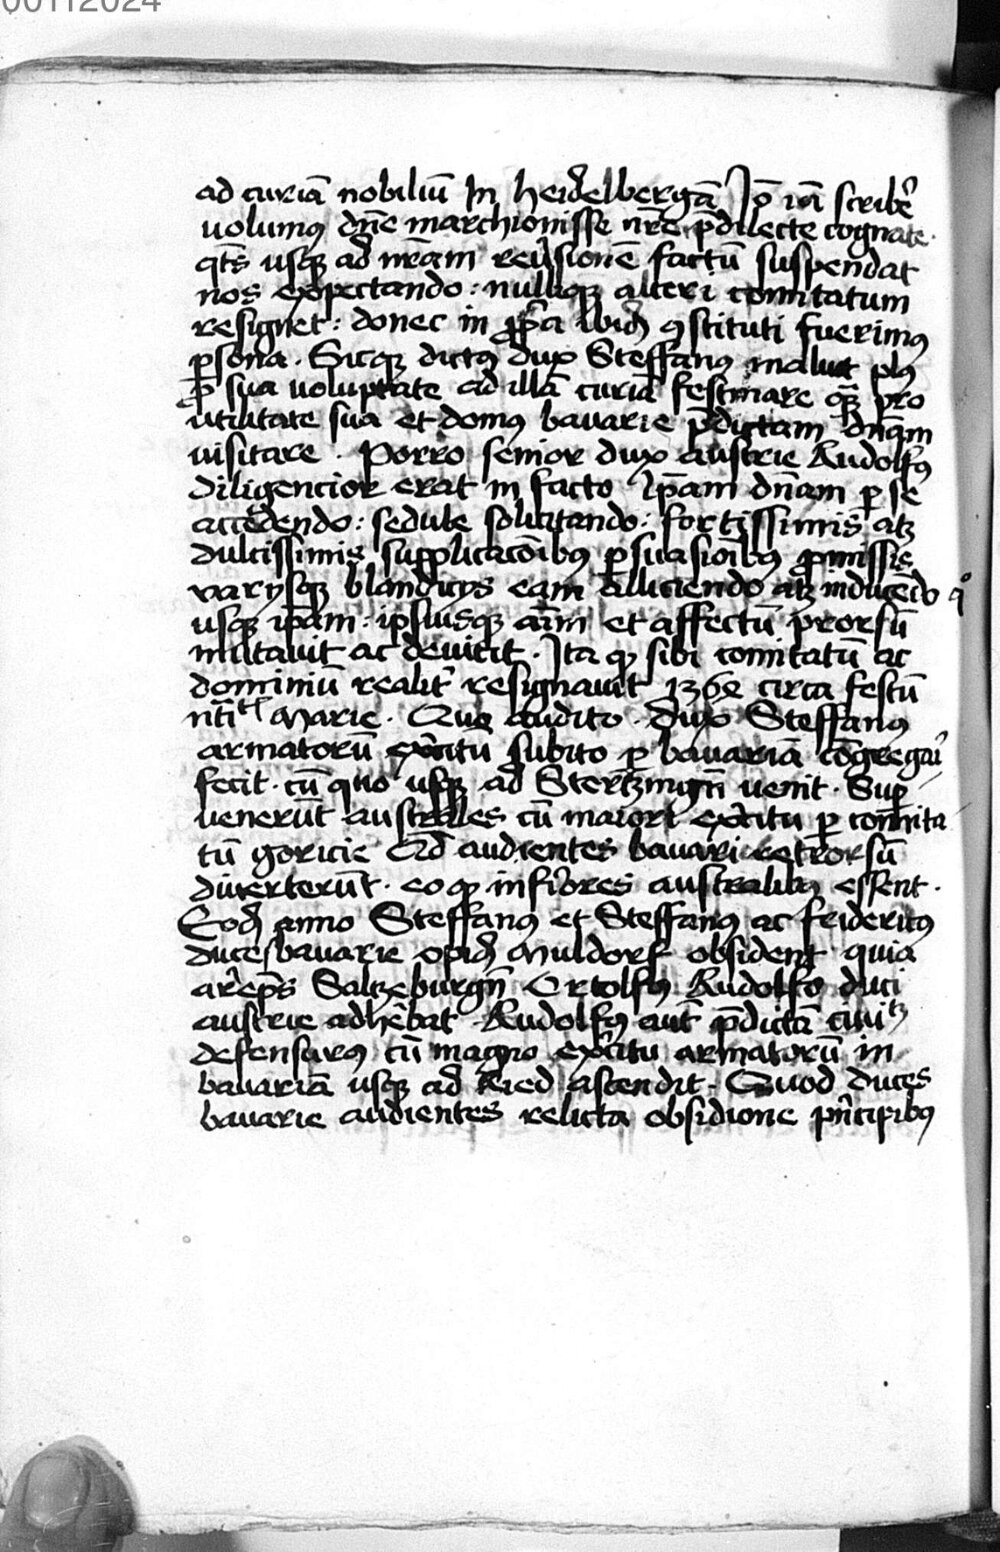 00112024
ad curiā nobiliū In heid̉elbergā Iō iā scribe᷑
uolumꝯ dn̄e marchionisse nr̄e p̄dilecte cognate.
qͣt̄s usqꝫ ad nr̄am reu̓sionē factū suspendat
nos expectando : nulliqꝫ alteri comitatum
resignet : donec in ꝓp̓a ibid̓ ꝯstituti fuerimꝯ
ꝑsona . Sicqꝫ dictꝯ dux Steffanꝯ maluit plꝯ
ꝓ sua uoluptate ad illā curiā festinare qͣꝫ pro
utilitate sua et domꝯ bauarie p̄dictam dn̄am
uisitare . Porro senior dux austrie Rudolfꝯ
diligencior erat in facto Ip̄am dn̄am ꝑ se
accedendo : sedule solicitando : fortissimis atꝫ
dulcissimis supplicacōibꝯ ꝑsuasionibꝯ ꝓmissis
varijsqꝫ blandicijs eam alliciendo atꝫ inducēdo qͦ
usqꝫ ip̄am : ipsiusqꝫ aīm et affectū prorsū
mutauit ac deuicit . Ita ꝙ sibi comitatū ac
dominiū realit᷑ resignauit 1362 circa festū
nt̄itͭ Marie . Quo audito . dux Steffanus
armatorū ex̓citū subito ꝑ bauariā cōgregari
fecit . cū quo usqꝫ ad Stertzingn̄ uenit . Sup
uenerūt australes cū maiori ex̓citu ꝑ comita
tū goricie Qd̄ audientes bauari retrorsū
diuerterūt . eo ꝙ inf̓iores australibꝯ essent .
Eod̓ anno Steffanꝯ et Steffanꝯ ac fridericꝯ
duces bauarie opid̓ Muldorf obsident quia
ar̓ep̄s Saltzeburgn̄ Ortolfꝯ Rudolfo duci
austrie adhēbat . Rudolfꝯ aut̄ p̄dictā ciuitꝫ
defensurꝯ cū magno ex̓citu armatorū in
bauariā usqꝫ ad Ried ascendit . Quod duces
bauarie audientes relicta obsidione pn̓cipibꝯ